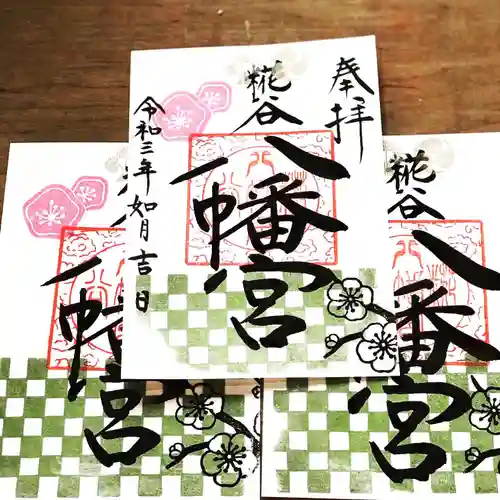 奉拝
糀谷
八幡宮
令和三年如月吉日
糀谷
八幡宮
八幡宮